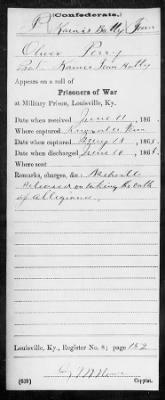 (Confederate.)
P Barnes' Batty Tenn
Oliver Perry
Pvt Barnes Tenn Batty
Appears on a roll of
Prisoners of War
at Military Prison, Louisville, Ky.
Date when received June 11, 1865.
Where captured Tenn
Date when captured 186
Date when discharged June 1865.
Where sent
Remarks, charges, &c: Nashville
Released on taking the oath
of Allegiance.
Louisville, Ky., Register No. 8; page 152
(639)
Copyist.